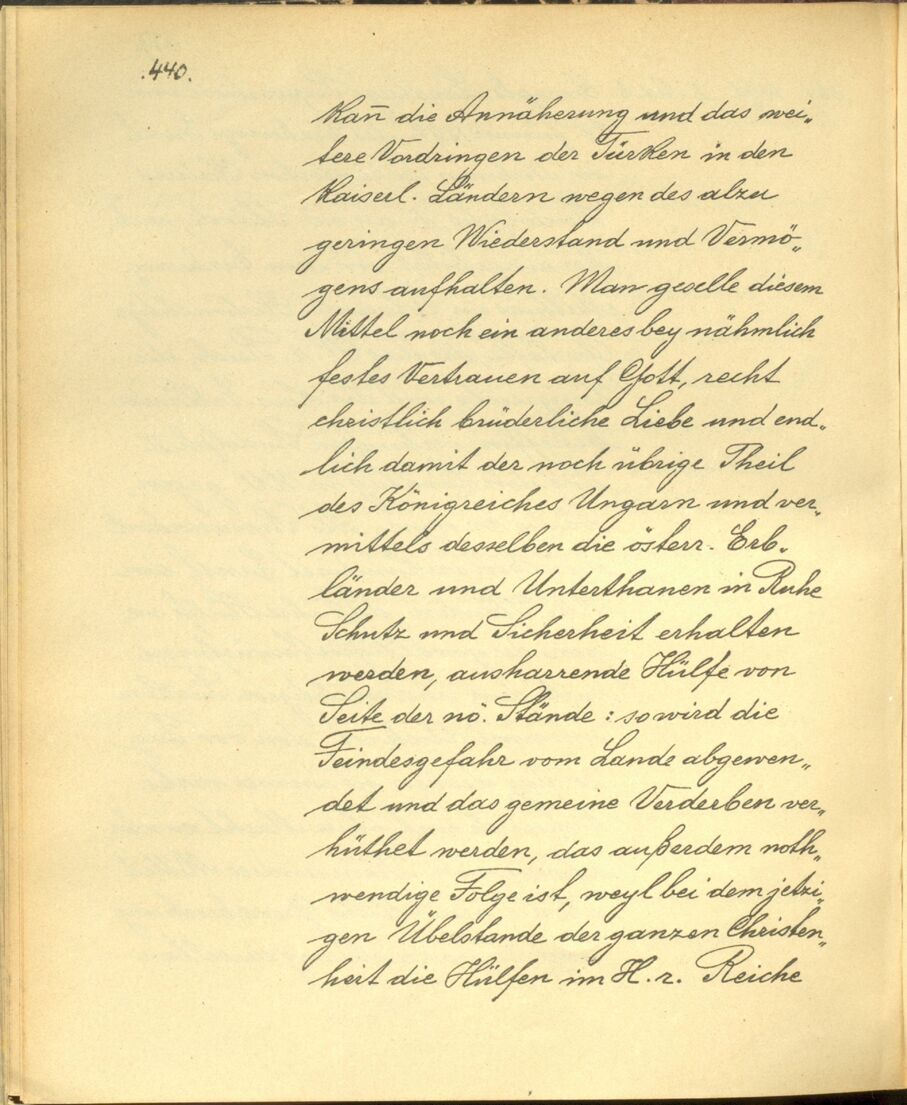 .440.
kan̄ die Annäherung und das wei„
tere Vordringen der Türken in den
Kaiserl. Ländern wegen des alzu
geringen Wiederstand und Vermö„
gens aufhalten. Man geselle diesem
Mittel noch ein anderes bey nähmlich
festes Vertrauen auf Gott, recht
christlich brüderliche Liebe und end„
lich damit der noch übrige Theil
des Königreiches Ungarn und ver„
mittels desselben die österr. Erb„
länder und Unterthanen in Ruhe
Schutz und Sicherheit erhalten
werden, ausharrende Hülfe von
Seite der nö. Stände: so wird die
Feindesgefahr vom Lande abgewen„
det und das gemeine Verderben ver„
hüthet werden, das außerdem noth„
wendige Folge ist, weyl bei dem jetzi„
gen Übelstande der ganzen Christen„
heit die Hülfen im H. r. Reiche